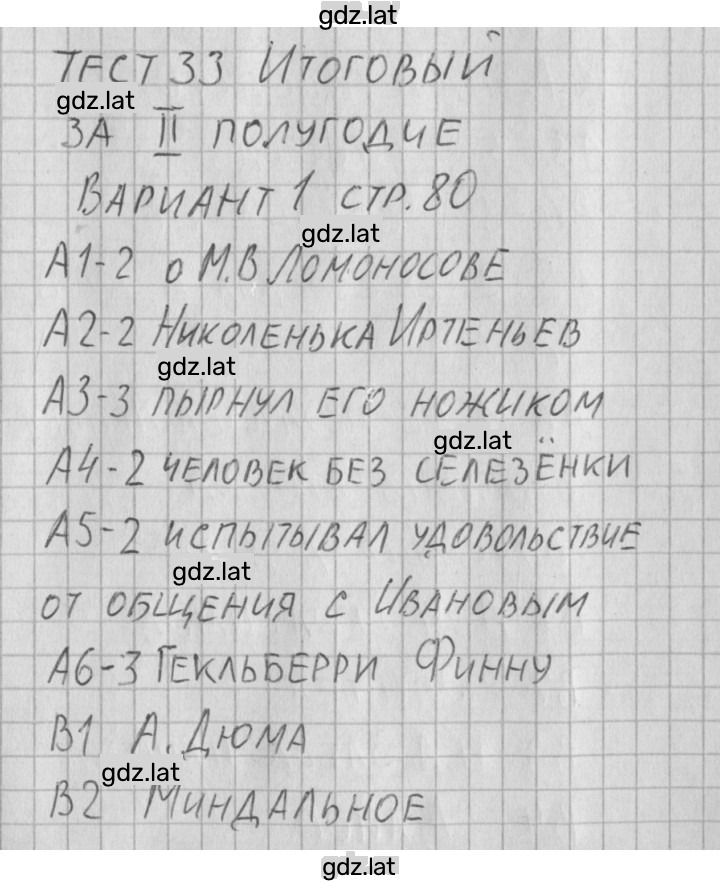 gdz.lat
ТЕСТ 33 ИТОГОВЫЙ
gdz.lat
ЗА II ПОЛУГОДИЕ
ВАРИАНТ 1 СТР. 80
gdz.lat
А1-2 О М.В ЛОМОНОСОВЕ
А2-2 НИКОЛЕНЬКА ИРТЕНЬЕВ
gdz.lat
А3-3 ПЫРНУЛ ЕГО НОЖИКОМ
gdz.lat
А4-2 ЧЕЛОВЕК БЕЗ СЕЛЕЗЁНКИ
А5-2 ИСПЫТЫВАЛ УДОВОЛЬСТВИЕ
gdz.lat
ОТ ОБЩЕНИЯ С ИВАНОВЫМ
А6-3 ГЕКЛЬБЕРРИ ФИННУ
В1 А. ДЮМА
gdz.lat
В2 МИНДАЛЬНОЕ
gdz.lat